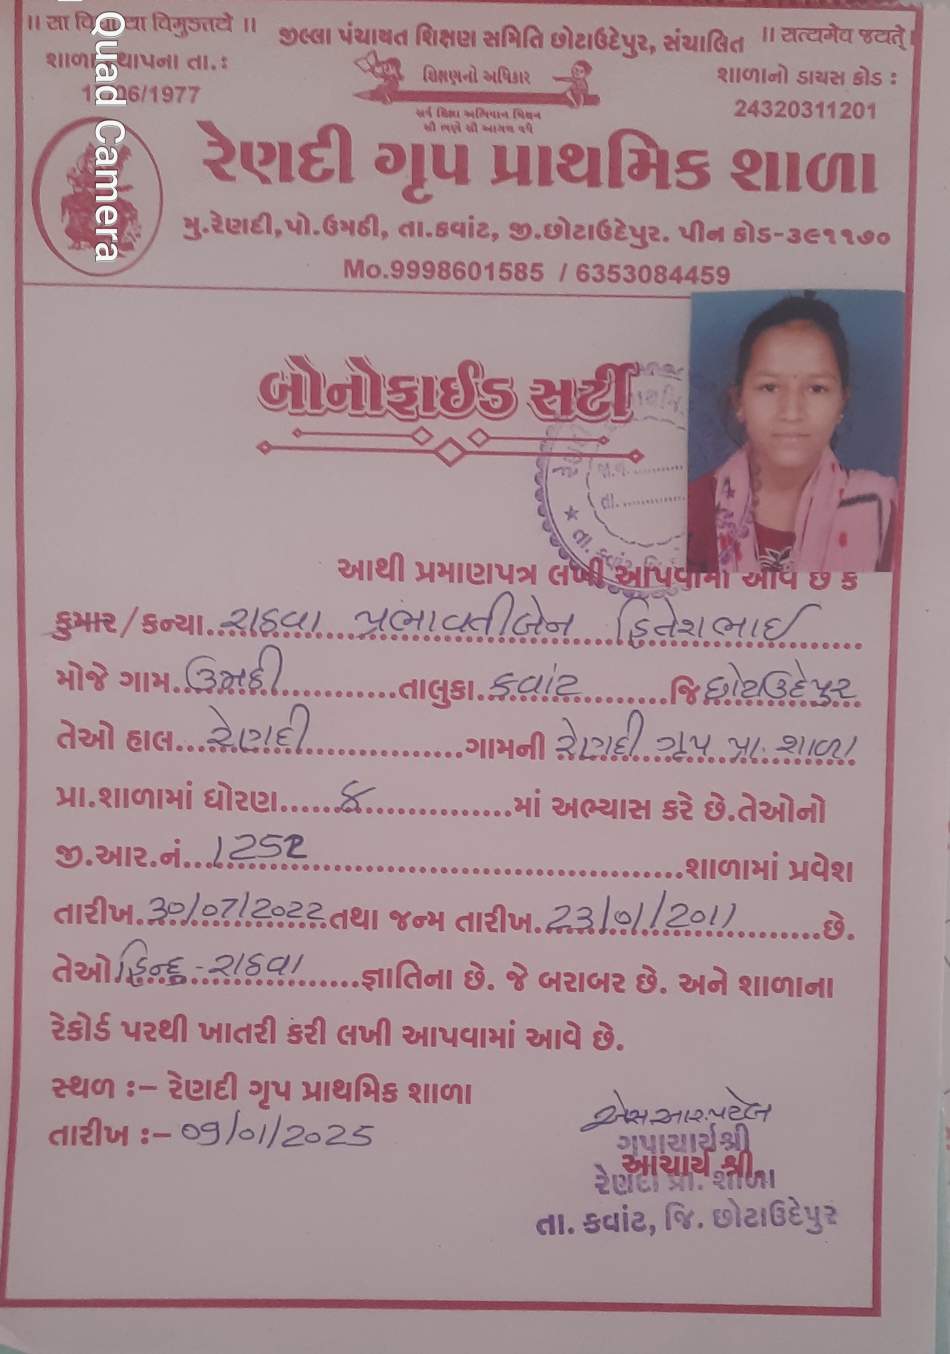 ॥ सा विद्या या विमुक्तये ॥
જીલ્લા પંચાયત શિક્ષણ સમિતિ છોટાઉદેપુર, સંચાલિત
॥ सत्यमेव जयते
શાળા સ્થાપના તા.:
શાળાનો ડાયસ કોડ :
/06/1977
24320311201
શિક્ષણનો અધિકાર
સર્વ શિક્ષા અભિયાન મિશન
સૌ ભણે સૌ આગળ વધે
રેણદી ગૃપ પ્રાથમિક શાળા
મુ.રેણદી,પો.ઉમઠી, તા.કવાંટ, જી.છોટાઉદેપુર. પીન કોડ-૩૯૧૧૭૦
Mo.9998601585 / 6353084459
Quad Camera
બોનોફાઈડ સર્ટી
તા.
તા. કવાંટ
આથી પ્રમાણપત્ર લખી આપવામાં આવે છે કે
કુમાર/કન્યા..રાઠવા પ્રભાવતીબેન હિતેશભાઈ
મોજે ગામ..ઉમઠી..............તાલુકા.કવાંટ.........જિ છોટાઉદેપુર
તેઓ હાલ...રેણદી..................ગામની રેણદી ગૃપ પ્રા. શાળા
પ્રા.શાળામાં ધોરણ......૪..............માં અભ્યાસ કરે છે.તેઓનો
જી.આર.નં...1252.............................................શાળામાં પ્રવેશ
તારીખ.30/07/2022 તથા જન્મ તારીખ.23/01/2011........છે.
તેઓ હિન્દુ-રાઠવા.......જ્ઞાતિના છે. જે બરાબર છે. અને શાળાના
રેકોર્ડ પરથી ખાતરી કરી લખી આપવામાં આવે છે.
સ્થળ :- રેણદી ગૃપ પ્રાથમિક શાળા
તારીખ :- 09/01/2025
એસ.આર.પટેલ
ગૃપાચાર્યશ્રી
આચાર્ય શ્રી,
રેણદી પ્રા. શાળા
તા. કવાંટ, જિ. છોટાઉદેપુર